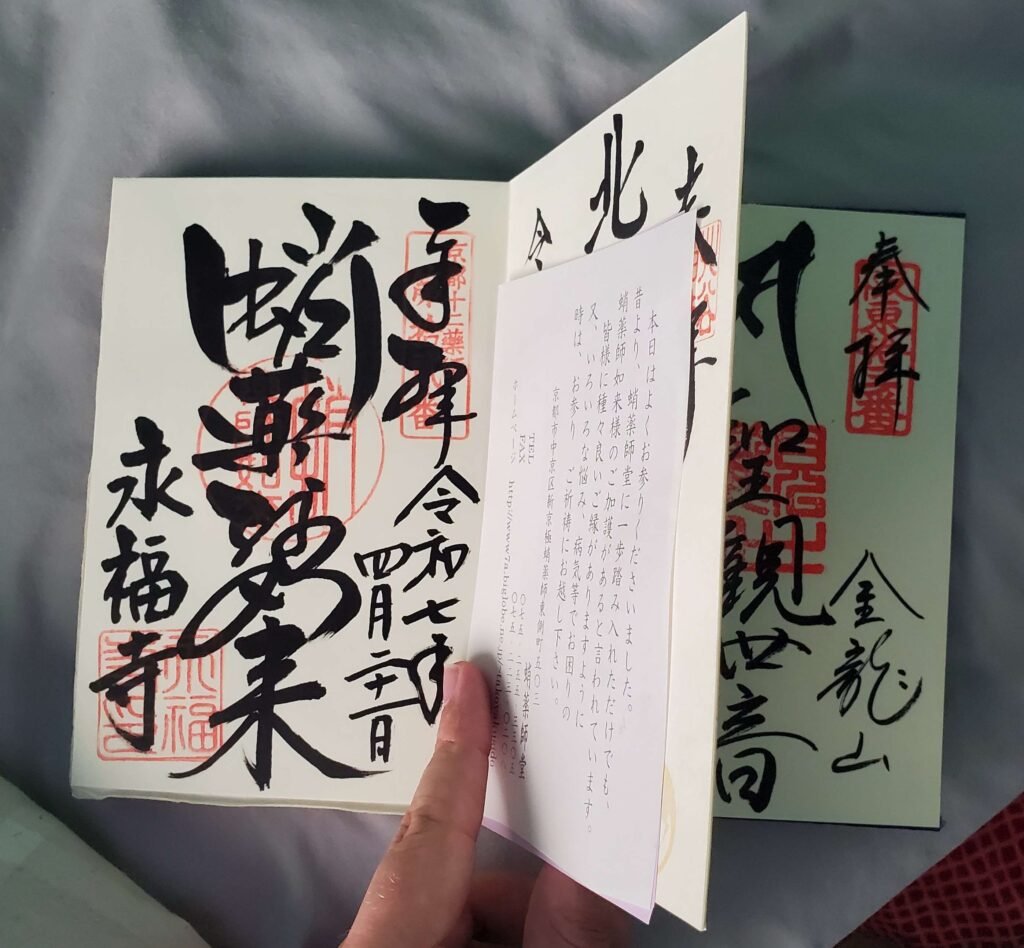 奉拝
聖観世音
金龍山
北
令
本日はよくお参りくださいました。
昔より、蛸薬師堂に一歩踏み入れただけでも、
蛸薬師如来様のご加護があると言われています。
皆様に種々良いご縁がありますように
又、いろいろな悩み、病気等でお困りの
時は、お参り ご祈祷にお越し下さい。
京都市中京区新京極蛸薬師東側町五〇三
蛸薬師堂
TEL 〇七五・二五五・
FAX 〇七五・
ホームページ
京都十二薬
奉拝 令和七年
四月二十一日
蛸薬師如来
永福寺
永福